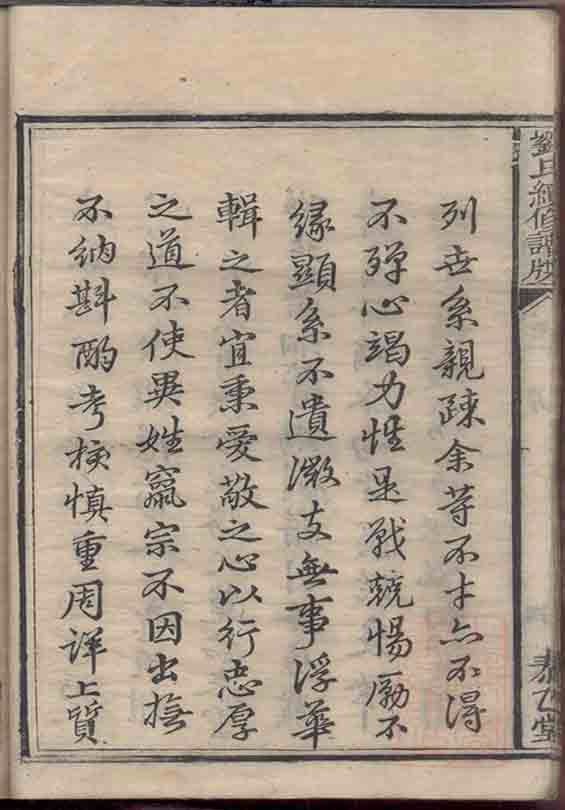 列世系親疎余等不才亦不得
不殫心竭力惟是戰兢惕厲不
緣顯系不遺微支無事浮華
輯之者宜秉愛敬之心以行忠厚
之道不使異姓竄宗不因出撫
不納斟酌考核慎重周詳上質
劉氏續修譜牒
泰乙堂